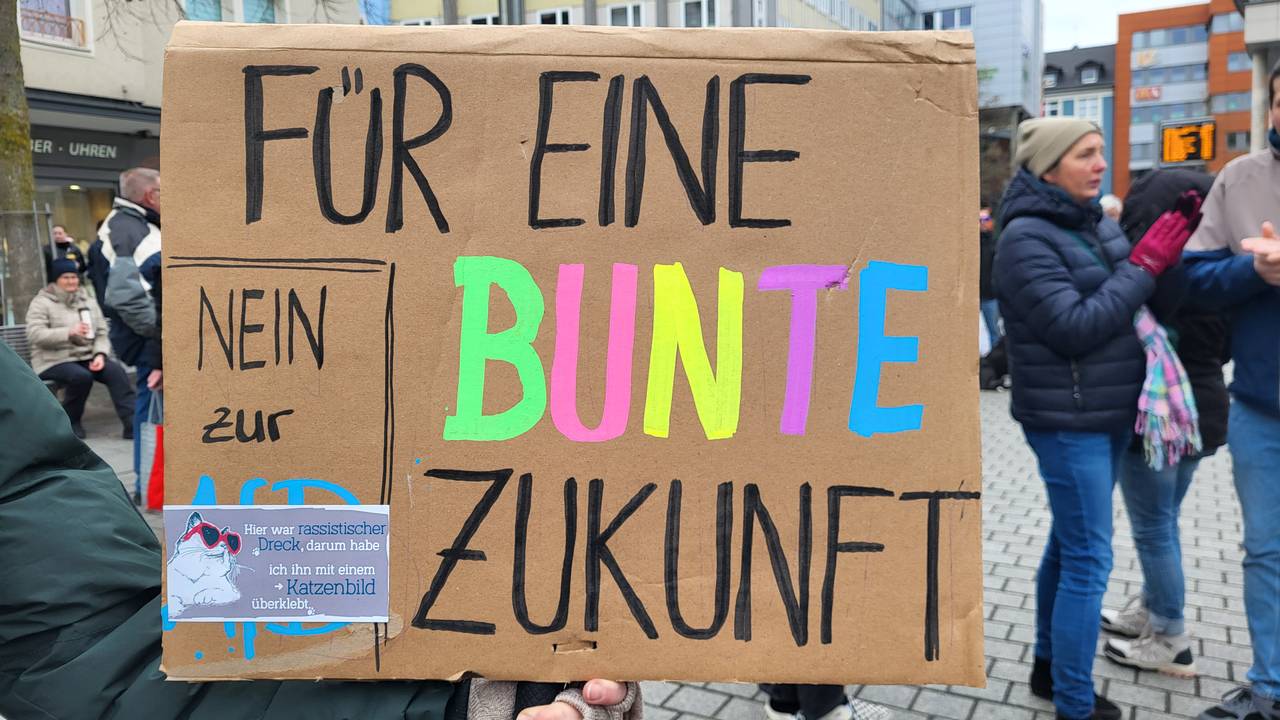 BER · UHREN
FÜR EINE
BUNTE
ZUKUNFT
NEIN
zur
AfD
Hier war rassistischer
Dreck, darum habe
ich ihn mit einem
→ Katzenbild
überklebt.